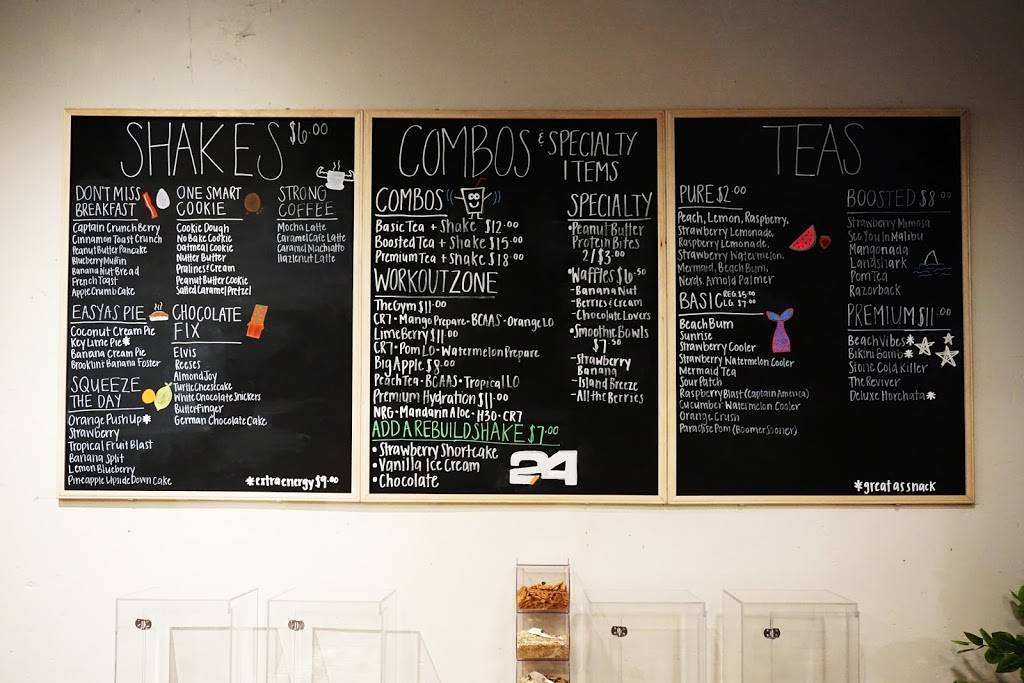 SHAKES $6.00
DON'T MISS
BREAKFAST
Captain Crunch Berry
Cinnamon Toast Crunch
Peanut Butter Pancake
Blueberry Muffin
Banana Nut Bread
French Toast
Apple Crumb Cake
EASY AS PIE
Coconut Cream Pie
Key Lime Pie*
Banana Cream Pie
Brooklint Banana Foster
SQUEEZE
THE DAY
Orange Push Up*
Strawberry
Tropical Fruit Blast
Banana Split
Lemon Blueberry
Pineapple Upside Down Cake
ONE SMART
COOKIE
Cookie Dough
No Bake Cookie
Oatmeal Cookie
Nutter Butter
Pralines & Cream
Peanut Butter Cookie
Salted Caramel Pretzel
CHOCOLATE
FIX
Elvis
Reeses
Almond Joy
Turtle Cheesecake
White Chocolate Snickers
Butterfinger
German Chocolate Cake
STRONG
COFFEE
Mocha Latte
Caramel Cafe Latte
Caramel Machiatto
Hazlenut Latte
*extra energy $9.00
COMBOS & SPECIALTY
ITEMS
COMBOS
Basic Tea + Shake $12.00
Boosted Tea + Shake $15.00
Premium Tea + Shake $18.00
WORKOUT ZONE
The Gym $11.00
CR7 • Mango Prepare • BCAAS • Orange LO
Lime Berry $11.00
CR7 • Pom LO • Watermelon Prepare
Big Apple $9.00
Peach Tea • BCAAS • Tropical LO
Premium Hydration $11.00
NRG • Mandarin Aloe • H30 • CR7
ADD A REBUILD SHAKE $7.00
• Strawberry Shortcake
• Vanilla Ice Cream
• Chocolate
24
SPECIALTY
• Peanut Butter
Protein Bites
2/$3.00
• Waffles $6.50
- Banana Nut
- Berries & Cream
- Chocolate Lovers
• Smoothie Bowls
$7.50
- Strawberry
Banana
- Island Breeze
- All the Berries
TEAS
PURE $2.00
Peach, Lemon, Raspberry,
Strawberry Lemonade,
Raspberry Lemonade,
Strawberry Watermelon,
Mermaid, Beach Bum,
Nerds, Arnold Palmer
BASIC REG. $5.00
LG. $7.00
Beach Bum
Sunrise
Strawberry Cooler
Strawberry Watermelon Cooler
Mermaid Tea
Sour Patch
Raspberry Blast (Captain America)
Cucumber Watermelon Cooler
Orange Crush
Paradise Pom (Boomer Sooner)
BOOSTED $8.00
Strawberry Mimosa
See You In Malibu
Mangonada
Landshark
Pom Tea
Razorback
PREMIUM $11.00
Beach Vibes*
Bikini Bomb*
Stone Cold Killer
The Reviver
Deluxe Horchata*
*great as snack